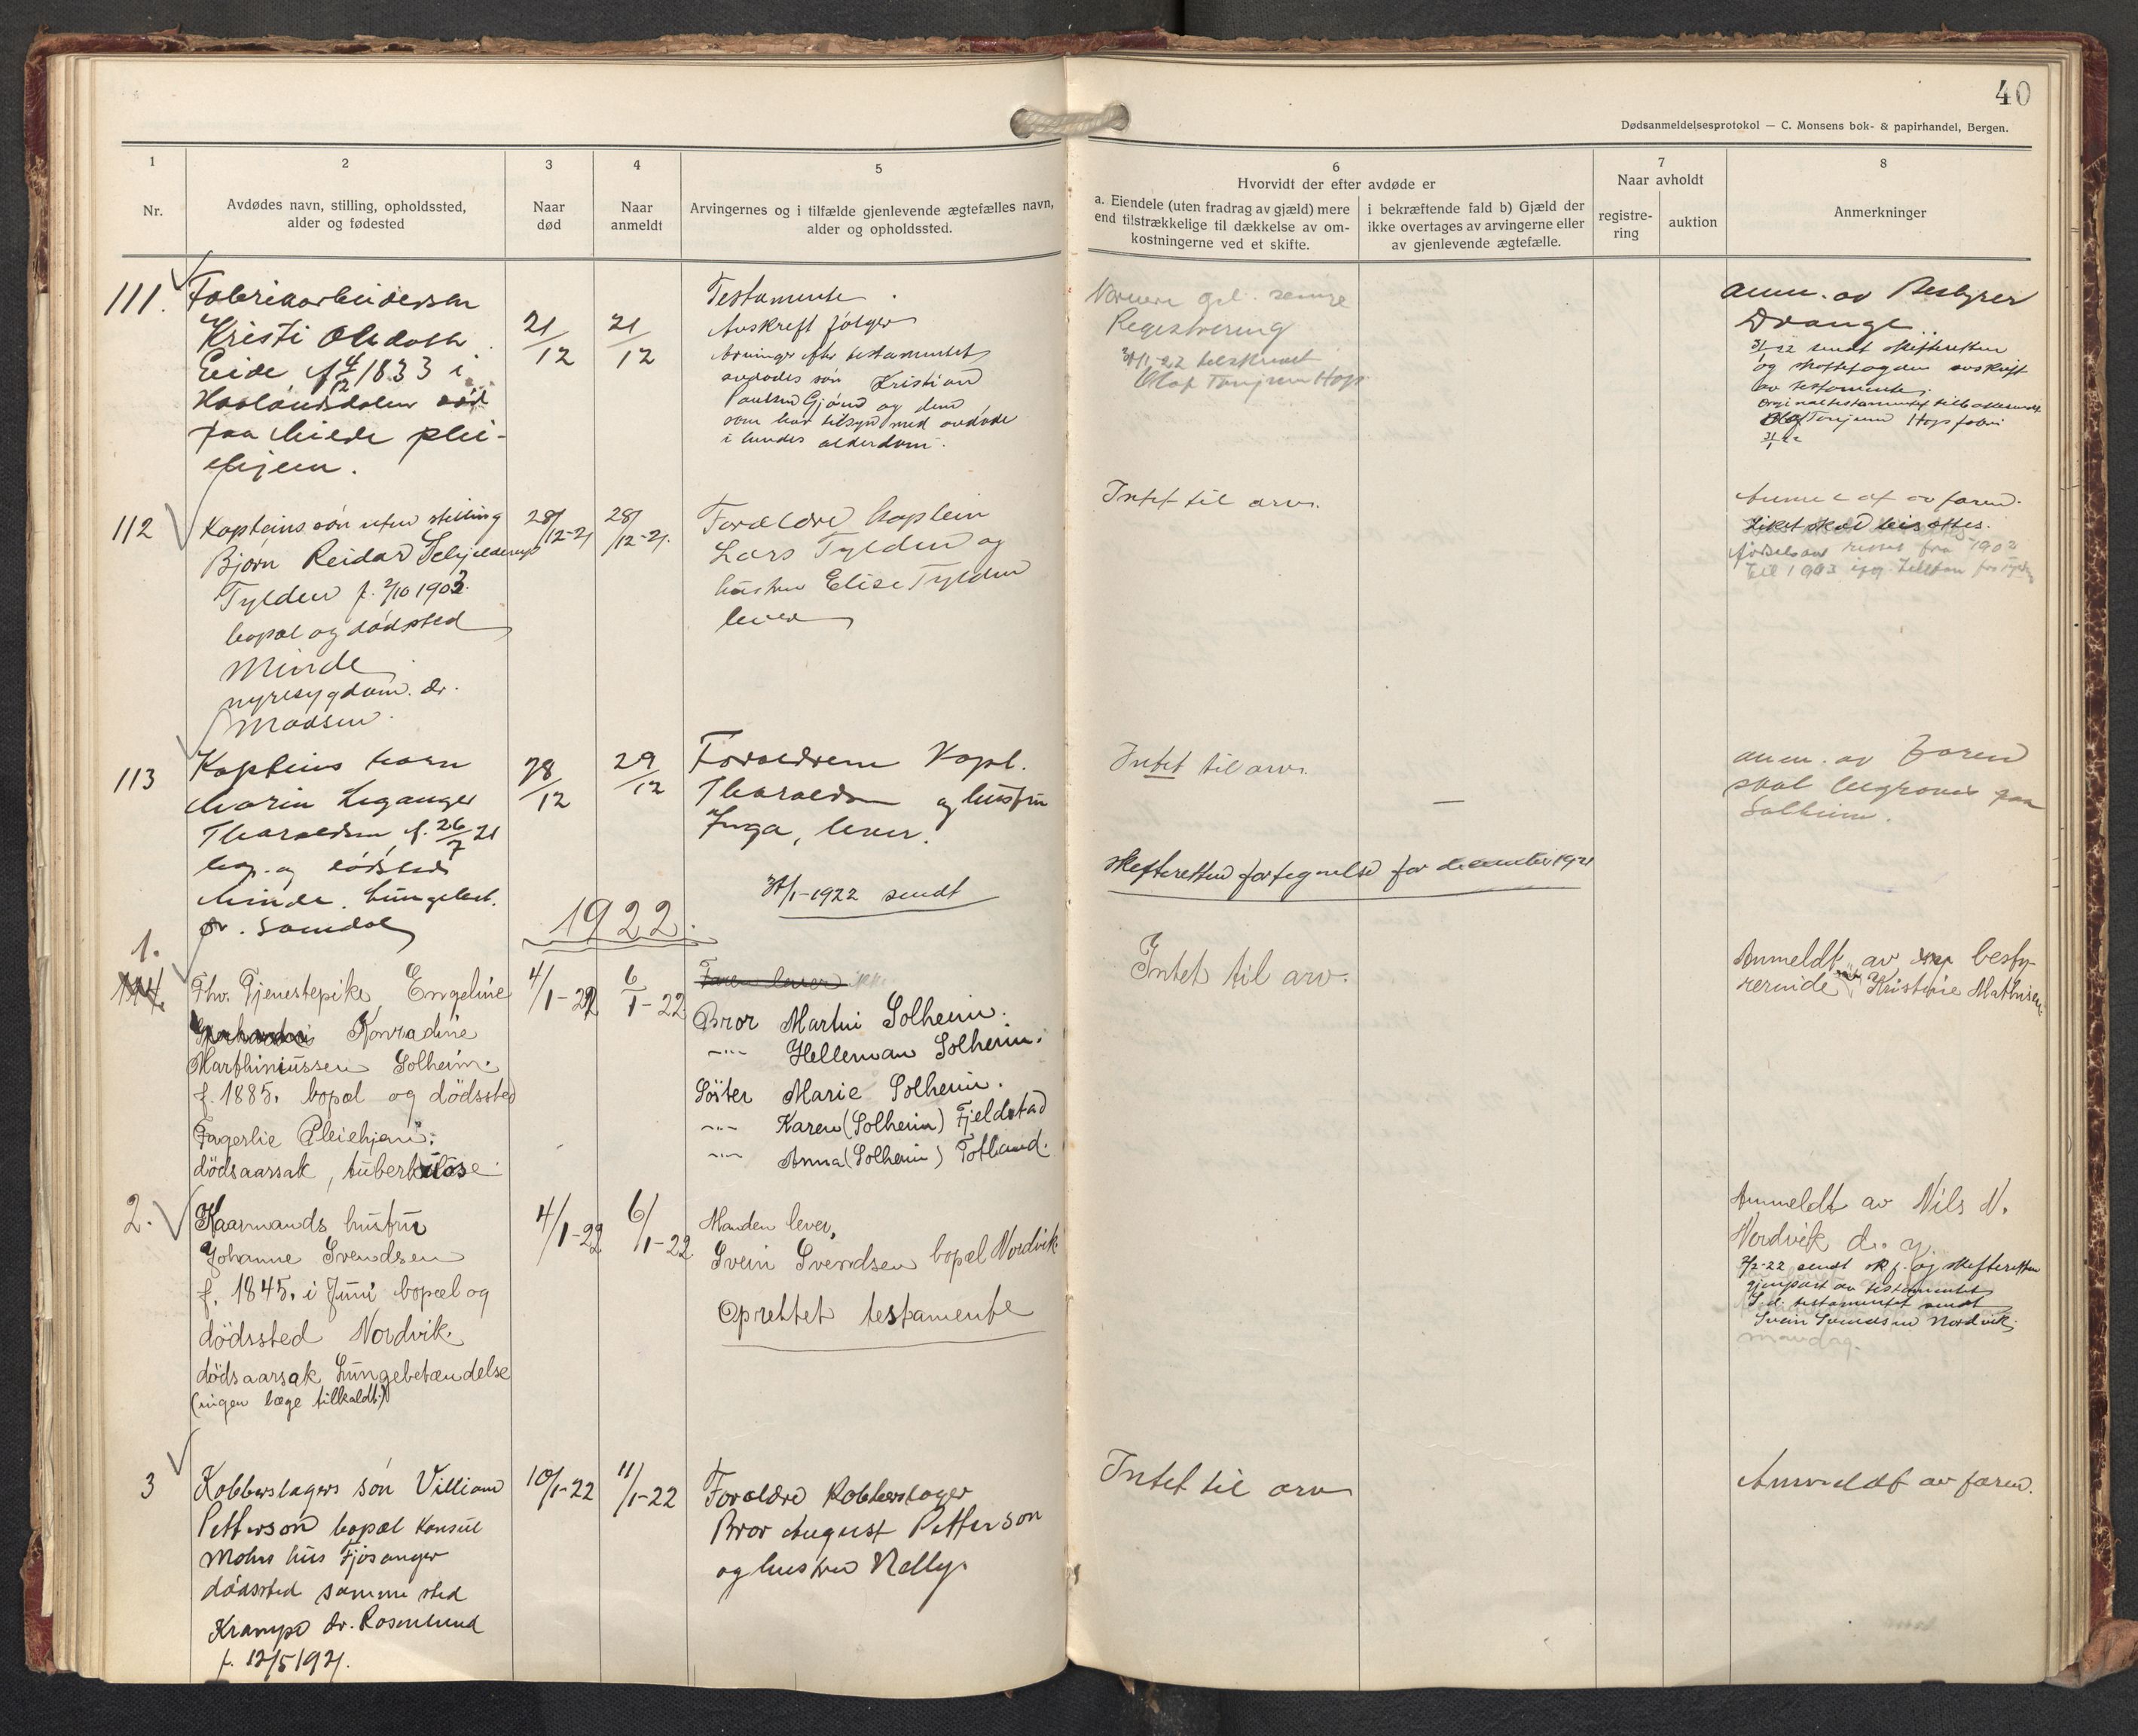 40
Dødsanmeldelsesprotokol — C. Monsens bok- & papirhandel, Bergen.
1
Nr.
2
Avdødes navn, stilling, opholdssted,
alder og fødested
3
Naar
død
4
Naar
anmeldt
5
Arvingernes og i tilfælde gjenlevende ægtefælles navn,
alder og opholdssted.
6
Hvorvidt der efter avdøde er
a. Eiendele (uten fradrag av gjæld) mere
end tilstrækkelige til dækkelse av om-
kostningerne ved et skifte.
i bekræftende fald b) Gjæld der
ikke overtages av arvingerne eller
av gjenlevende ægtefælle.
7
Naar avholdt
registre-
ring
auktion
8
Anmerkninger
111.
Kristi
Eide f 4/12 1833 i
Haalandsdalen død
paa Minde plei-
ehjem.
21/12
21/12
Testamente
Avskrift følger
Arvinger efter testamentet
avdødes søn Kristian
Paulsen Gjøn og dem
som har tilsyn med avdøde
i hendes alderdom.
Registrering
31/1-22 tilskrevet
Olaf Tonjum Hop
anm. av Bestyrer
Drange
31/1 22 sendt skifteretten
og skattefogden avskrift
av testamente.
Originaltestamentet
Olaf Tonjum Hops
31/1 22
112
Kapteins søn uten stilling
Bjørn Reidar
Tylden f. 2/10 1903.
bopæl og dødssted
Minde
nyresygdom. dr.
Madsen.
28/12-21
28/12-21.
Forældre kaptein
Lars Tylden og
hustru Elise Tylden
lever
Intet til arv.
av faren.
Liket skal
fødselsaar rettet fra 1902
til 1903
113
Kapteins barn
Marin Leganger
Tharaldsen, f. 26/7 21
bop. og dødssted
Minde. Lungebet.
dr. Somdal
28/12
29/12
Forældrene Kapt.
Tharaldsen og hustru
Inga, lever.
Intet til arv.
—
anm. av faren
skal begraves paa
Solheim.
31/1-1922 sendt
skifteretten fortegnelse for december 1921
1922.
1.
114.
Fhv. Tjenestepike Engeline
Konradine
Marthiniussen Solheim.
f. 1885. bopæl og dødssted
Fagerlie Pleiehjem.
dødsaarsak, tuberkulose.
4/1-22
6/1-22
Faren lever ikke
Bror Martin Solheim.
—"— Helleman Solheim.
Søster Marie Solheim.
—"— Karen (Solheim) Fjeldstad
—"— Anna (Solheim) Totland.
Intet til arv.
Anmeldt av besty-
rerinde Kristine Mathisen.
2.
Kaarmands hustru
Johanne Svendsen
f. 1845. i Juni bopæl og
dødssted Nordvik.
dødsaarsak Lungebetændelse
(ingen læge tilkaldt)
4/1-22
6/1-22
Manden lever,
Svein Svendsen bopæl Nordvik
Oprettet testamente
Anmeldt av Nils N.
Nordvik d. y.
7/2-22 sendt sk. f. og skifteretten
gjenpart av testamentet
S. d. testamentet sendt
Svein Svendsen Nordvik.
mandag.
3
Kobberslagers søn Villiam
Petterson bopæl Konsul
Mohns hus Fjøsanger
dødssted samme sted
Krampe dr. Rosenlund
f. 12/5 1921.
10/1-22
11/1-22
Forældre Kobberslager
Bror August Petterson
og hustru Nelly.
Intet til arv
Anmeldt av faren.